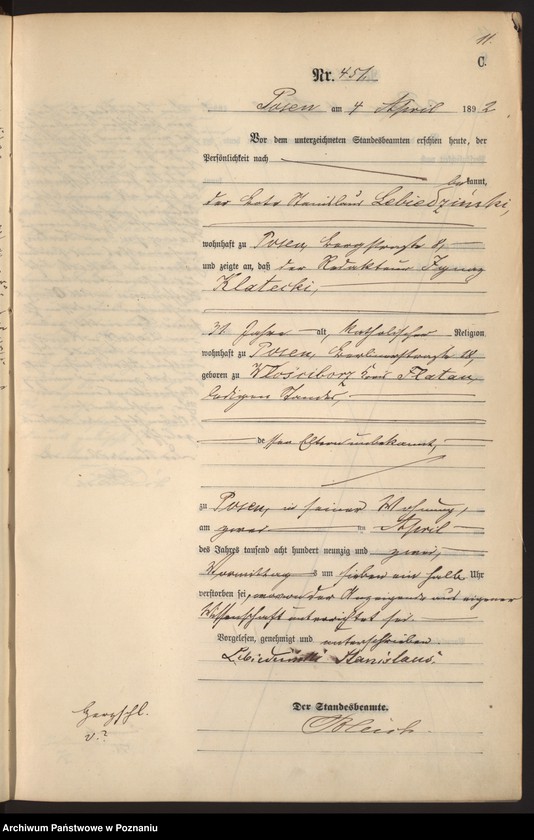 11.
C.
Nr. 451.
Posen am 4 April 1892
Vor dem unterzeichneten Standesbeamten erschien heute, der
Persönlichkeit nach
bekannt,
der Bote Stanislaus Lebiedziński,
wohnhaft zu Posen, Bergstraße 8,
und zeigte an, daß der Redakteur Ignaz
Klatecki,
31 Jahre alt, katholischer Religion
wohnhaft zu Posen, Berlinerstraße
geboren zu Włościborz Kreis Flatau,
ledigen Standes,
dessen Eltern unbekannt,
zu Posen, in seiner Wohnung,
am zwei ten April
des Jahres tausend acht hundert neunzig und zwei,
Vormittags um sieben ein halb Uhr
verstorben sei, wovon der Anzeigende aus eigener
Wissenschaft unterrichtet sei.
Vorgelesen, genehmigt und unterschrieben
Stanislaus.
Der Standesbeamte.
Bleich.
Archiwum Państwowe w Poznaniu